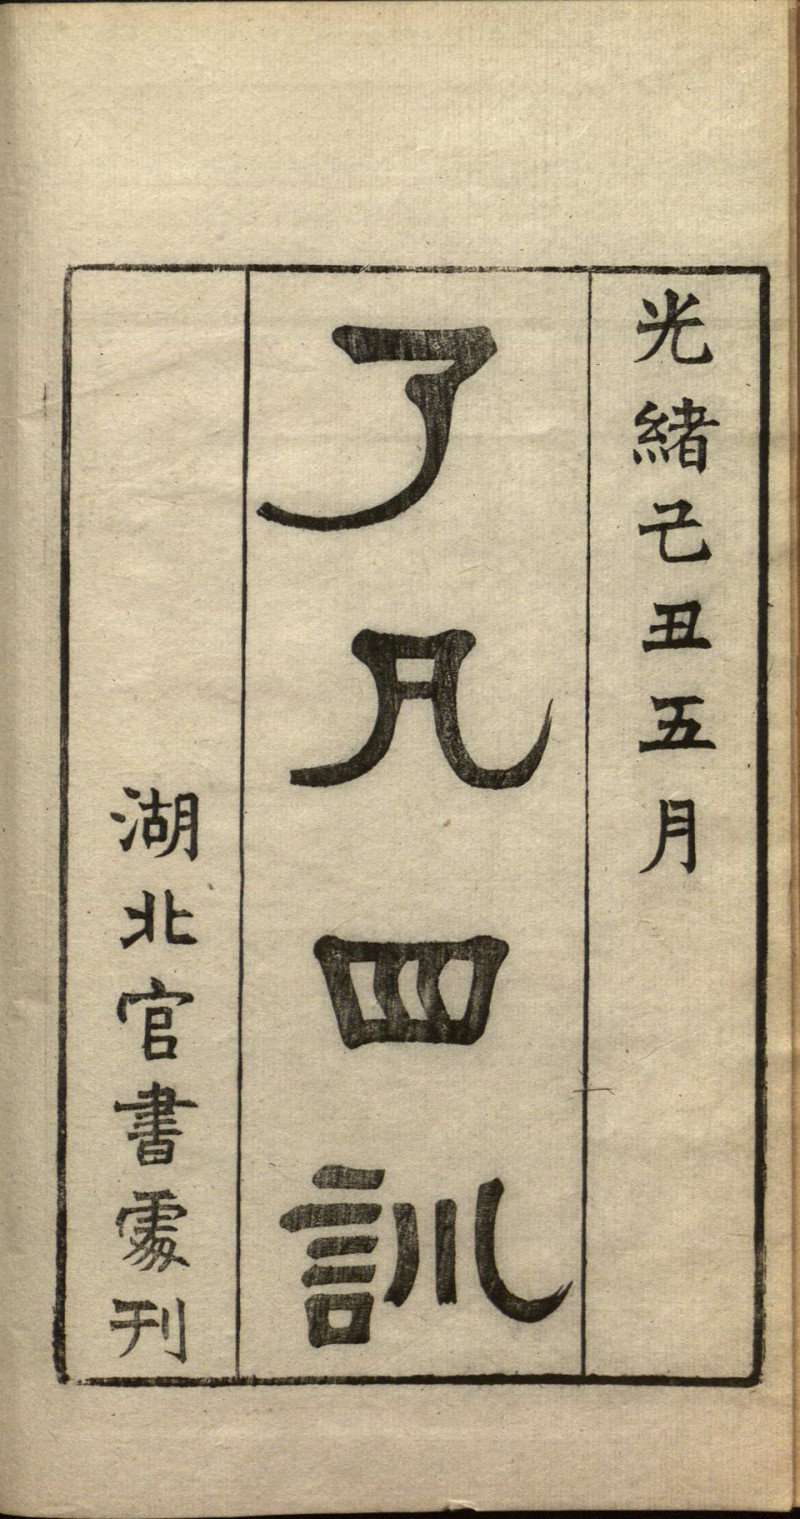 光緒己丑五月
了凡四訓
湖北官書處刊